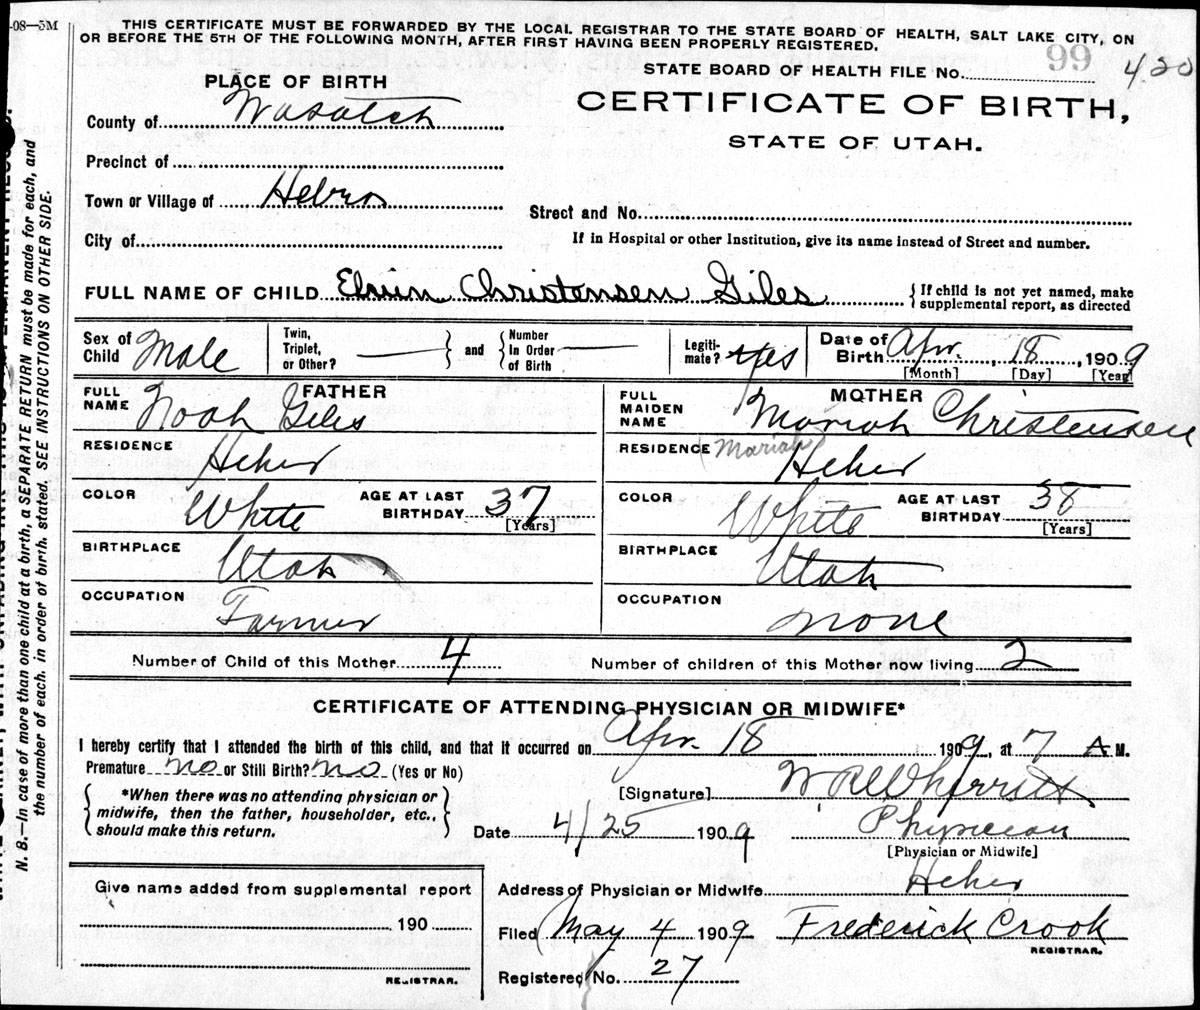 -08—5M
THIS CERTIFICATE MUST BE FORWARDED BY THE LOCAL REGISTRAR TO THE STATE BOARD OF HEALTH, SALT LAKE CITY, ON
OR BEFORE THE 5TH OF THE FOLLOWING MONTH, AFTER FIRST HAVING BEEN PROPERLY REGISTERED.
STATE BOARD OF HEALTH FILE No. 99 420
CERTIFICATE OF BIRTH,
STATE OF UTAH.
PLACE OF BIRTH
County of Wasatch
Precinct of
Town or Village of
City of
Street and No.
If in Hospital or other Institution, give its name instead of Street and number.
FULL NAME OF CHILD Christensen Giles { If child is not yet named, make
supplemental report, as directed
Sex of Child Male
Twin, Triplet, or Other? — } and { Number In Order of Birth —
Legitimate? Yes
Date of Birth Apr. 18, 1909
[Month] [Day] [Year]
FATHER
FULL NAME Noah Giles
RESIDENCE Heber
COLOR White AGE AT LAST BIRTHDAY 37
[Years]
BIRTHPLACE Utah
OCCUPATION Farmer
MOTHER
FULL MAIDEN NAME Mariah Christensen
(Mariah)
RESIDENCE Heber
COLOR White AGE AT LAST BIRTHDAY 38
[Years]
BIRTHPLACE Utah
OCCUPATION None
Number of Child of this Mother 4 Number of children of this Mother now living 2
CERTIFICATE OF ATTENDING PHYSICIAN OR MIDWIFE*
I hereby certify that I attended the birth of this child, and that it occurred on Apr. 18 1909, at 7 A M.
Premature no or Still Birth? no (Yes or No)
{ *When there was no attending physician or
midwife, then the father, householder, etc.,
should make this return. }
[Signature] W R Wherritt
Date 4/25 1909 Physician
[Physician or Midwife]
Address of Physician or Midwife Heber
Filed May 4 1909 Frederick Crook
REGISTRAR.
Registered No. 27
Give name added from supplemental report
190
REGISTRAR.
N. B.—In case of more than one child at a birth, a SEPARATE RETURN must be made for each, and
the number of each, in order of birth, stated. SEE INSTRUCTIONS ON OTHER SIDE.